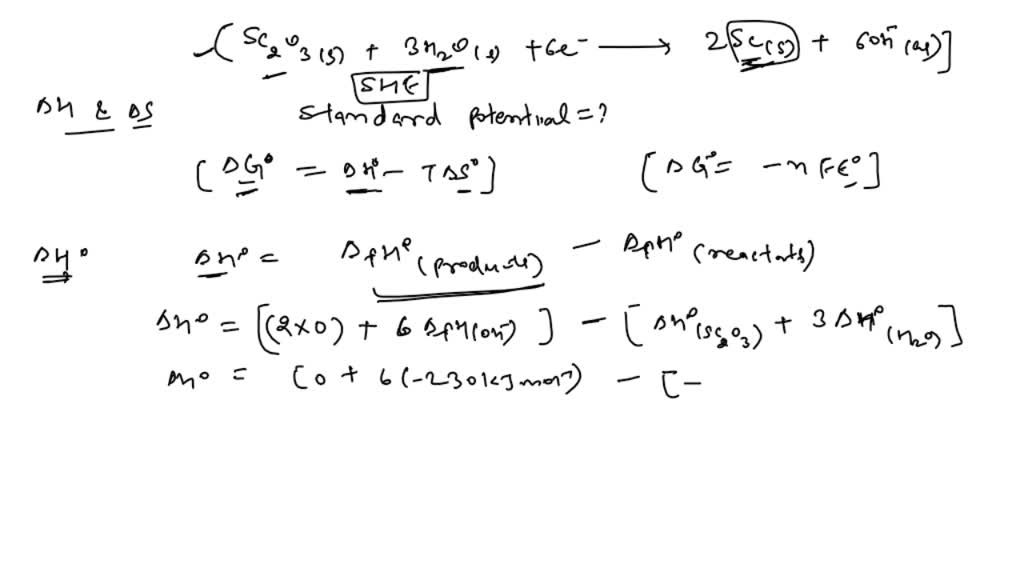 (Sc₂O₃(s) + 3H₂O(l) + 6e⁻ ⟶ 2Sc(s) + 6OH⁻(aq)]
SHE
ΔH & ΔS
Standard potential = ?
[ΔG° = ΔH° − TΔS°] [ΔG° = −nFE°]
ΔH° ΔH° = ΔfH°(products) − ΔfH°(reactants)
ΔH° = [(2×0) + 6ΔfH(OH⁻)] − [ΔH°(Sc₂O₃) + 3ΔH°(H₂O)]
ΔH° = [0 + 6(−230kJmol⁻) − [−